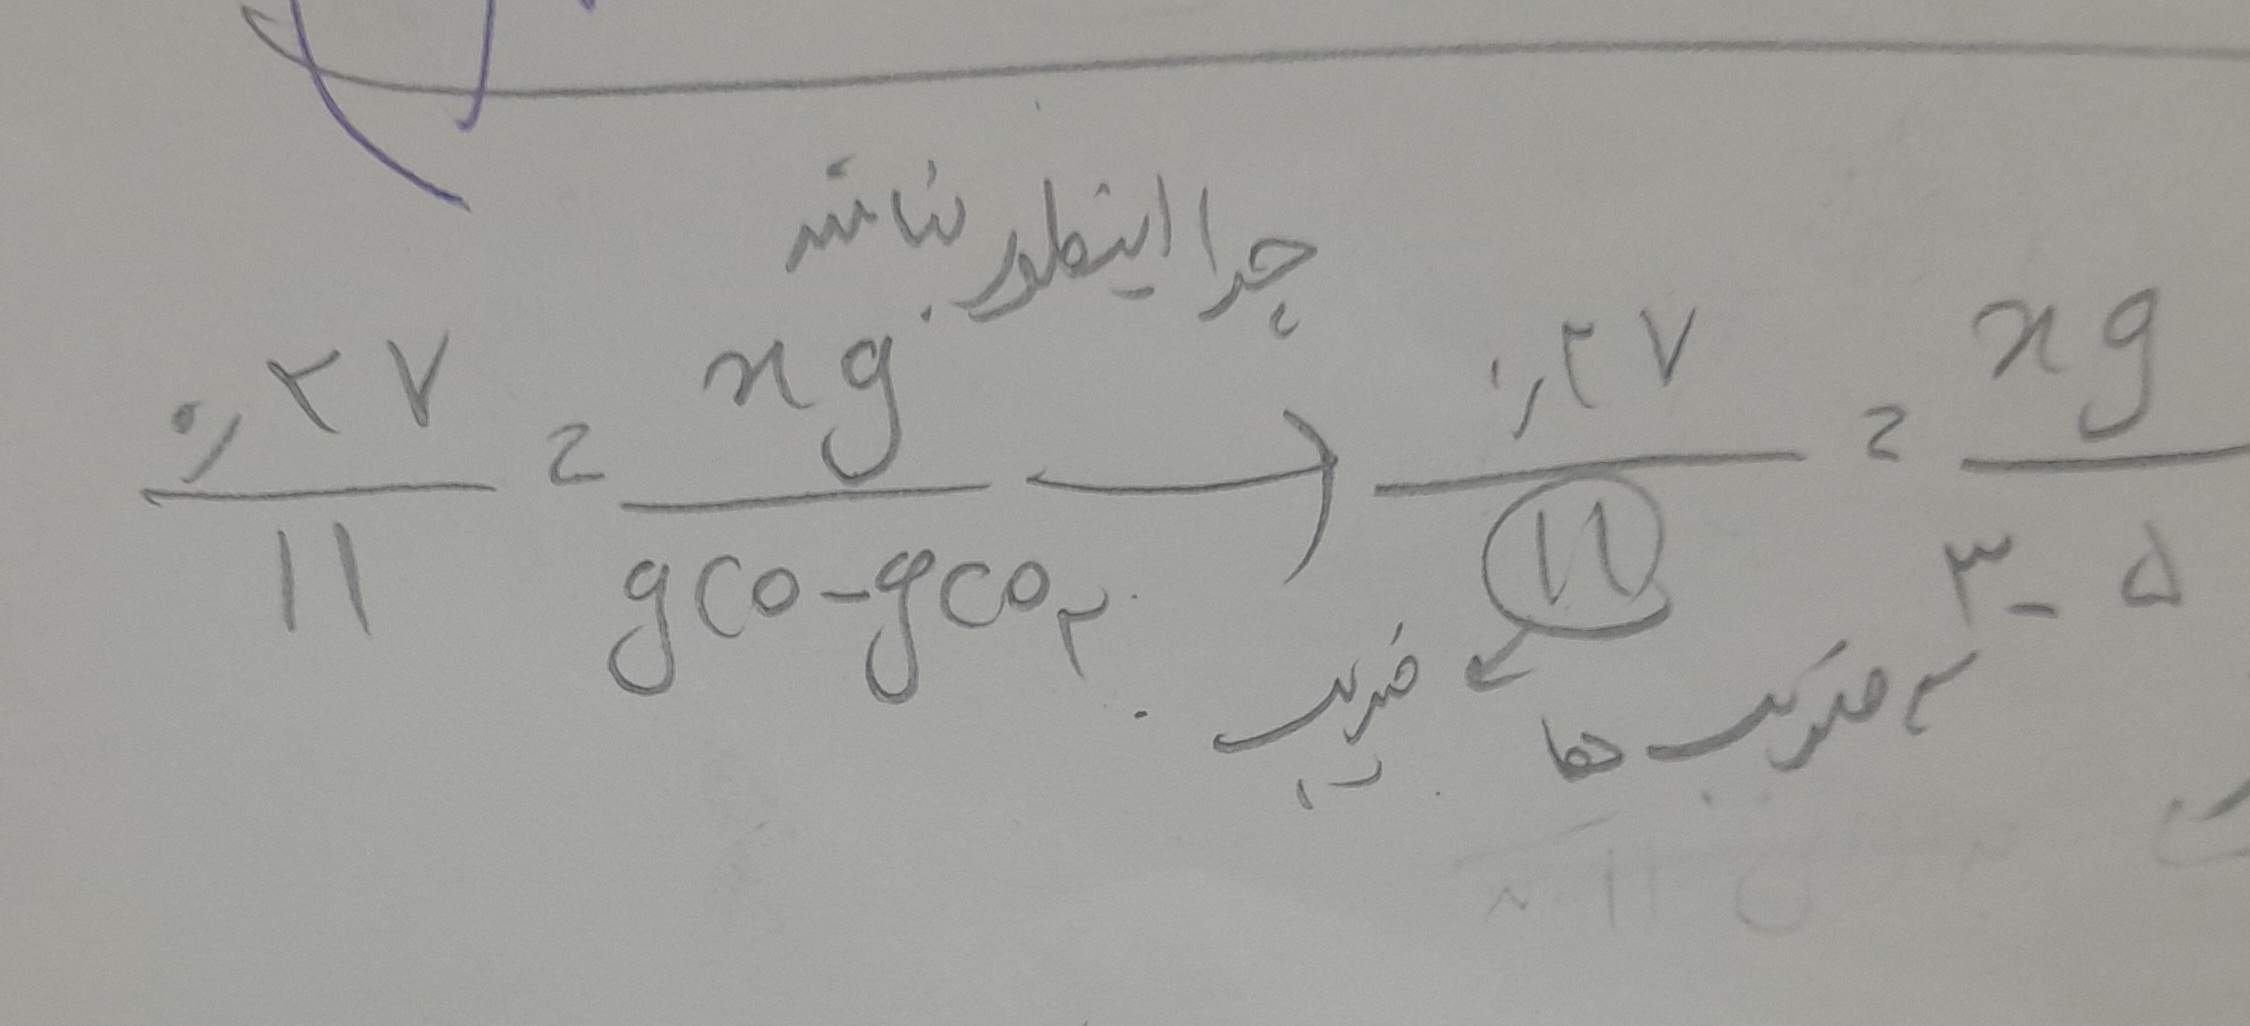 چرا اینطور نباشد
۰٫۲۷ / ۱۱ = xg / gCO-gCO₂ → ۰٫۲۷ / ۱۱ = xg / ۳-۵
ضریب
ضریب ها